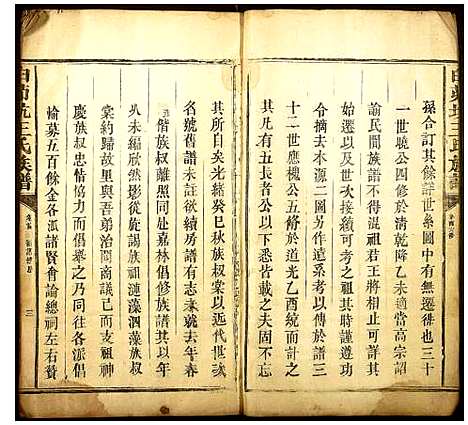 孫合訂其餘詳世系圖中有無遷徙也三十
一世曉公四修於清乾隆乙未適當高宗詔
諭民間族譜不得混祖君王將相於可詳其
始遷以及世次可考之祖其時謹遵功
令摘去水源二圖另作遠系考以傳於譜三
十二世應機公五修於道光乙酉統而計之
凡其有五長者以下悉皆載之夫固不無
其所自矣光緒癸巳秋族叔棠以近代世次
名號舊譜未註欲續房譜有志未就去年春
五偕族叔離照同赴嘉林倡修族譜其以年
久未編欣然影從旋謁族祖漣藻泗藻族叔
棠約歸故里與吾弟治同商議已而支祖神
慶族叔忠情協力而倡舉之乃同往各派倡
輸募五百餘金各派諸賢會論總祠左右贊
白茆坑王氏族譜
卷首
三